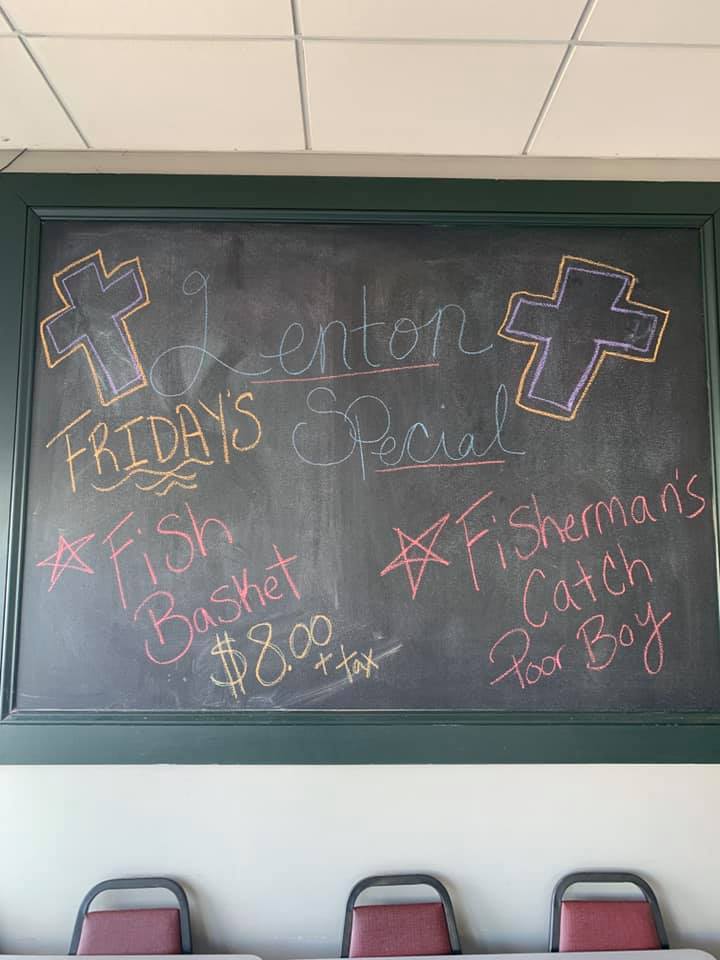 Lenton
FRIDAY'S
Special
Fish
Basket
$8.00
+ tax
Fisherman's
Catch
Poor Boy